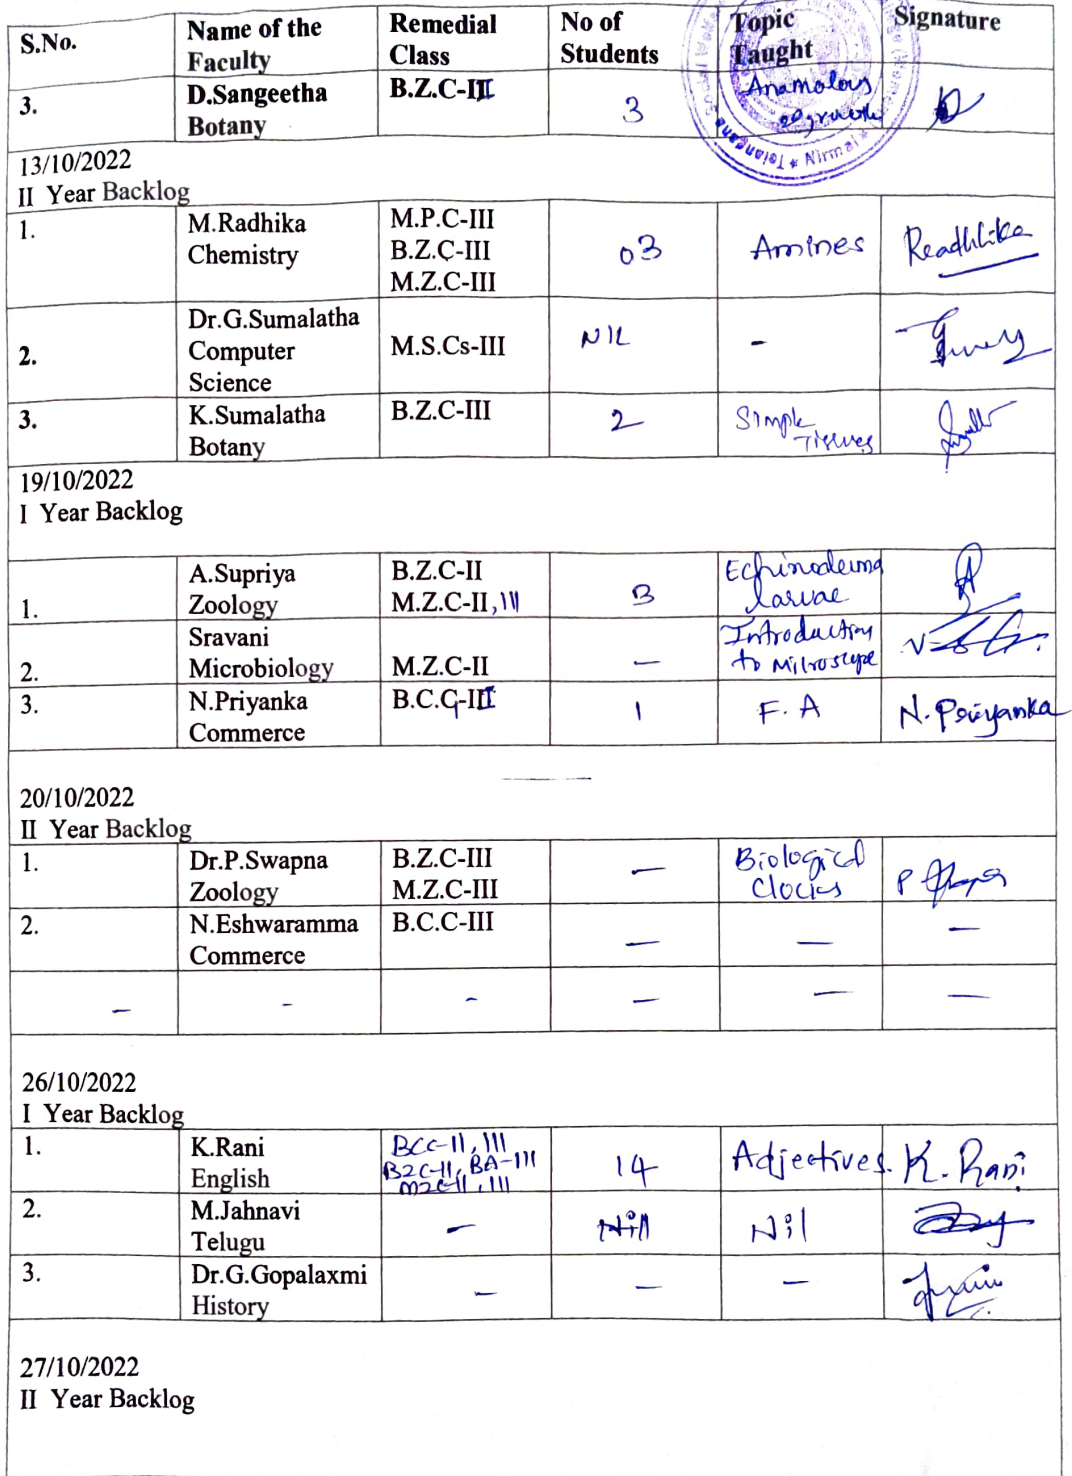 S.No.
Name of the
Faculty
Remedial
Class
No of
Students
Topic
Taught
Signature
3.
D.Sangeetha
Botany
B.Z.C-III
3
Anamolous
growth
Telangana * Nirmal *
13/10/2022
II Year Backlog
1.
M.Radhika
Chemistry
M.P.C-III
B.Z.C-III
M.Z.C-III
03
Amines
Readhika
2.
Dr.G.Sumalatha
Computer
Science
M.S.Cs-III
NIL
-
3.
K.Sumalatha
Botany
B.Z.C-III
2
Simple
Tissues
19/10/2022
I Year Backlog
1.
A.Supriya
Zoology
B.Z.C-II
M.Z.C-II, III
3
Echinoderma
larvae
2.
Sravani
Microbiology
M.Z.C-II
—
Introduction
to Microscope
3.
N.Priyanka
Commerce
B.C.C-III
1
F. A
N. Priyanka
20/10/2022
II Year Backlog
1.
Dr.P.Swapna
Zoology
B.Z.C-III
M.Z.C-III
—
Biological
Clocks
2.
N.Eshwaramma
Commerce
B.C.C-III
—
—
—
—
-
-
—
—
—
26/10/2022
I Year Backlog
1.
K.Rani
English
BCC-II, III
BZC-II, BA-III
MZC-II, III
14
Adjectives.
K. Rani
2.
M.Jahnavi
Telugu
—
Nil
Nil
3.
Dr.G.Gopalaxmi
History
—
—
—
27/10/2022
II Year Backlog